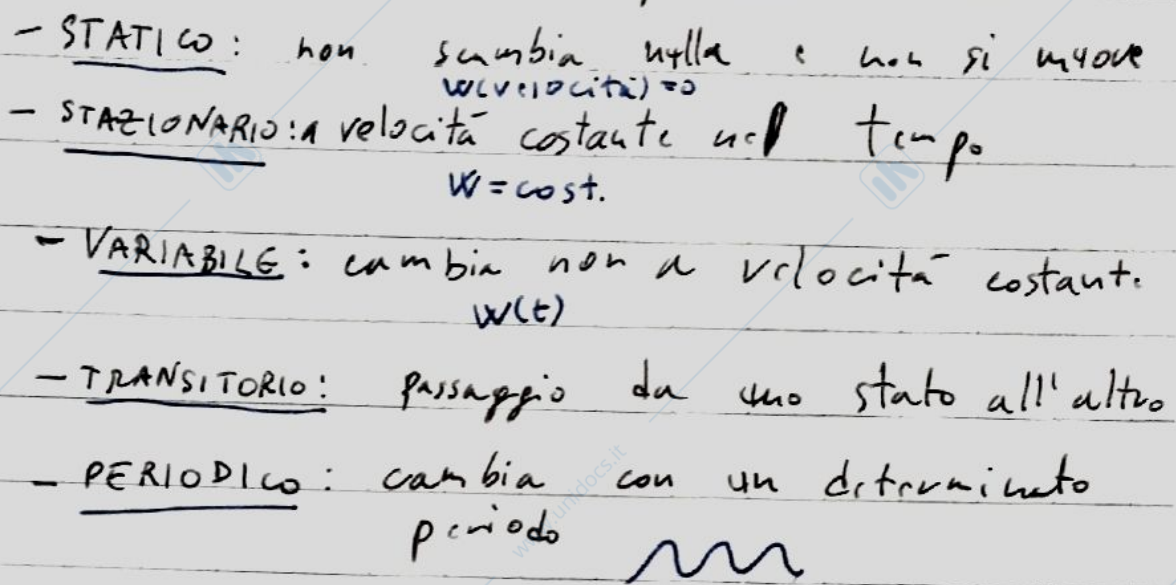 - STATICO: non scambia nulla e non si muove
w(velocità) = 0
- STAZIONARIO: a velocità costante nel tempo
w = cost.
- VARIABILE: cambia non a velocità costante
w(t)
- TRANSITORIO: passaggio da uno stato all'altro
- PERIODICO: cambia con un determinato
periodo
www.unidocs.it